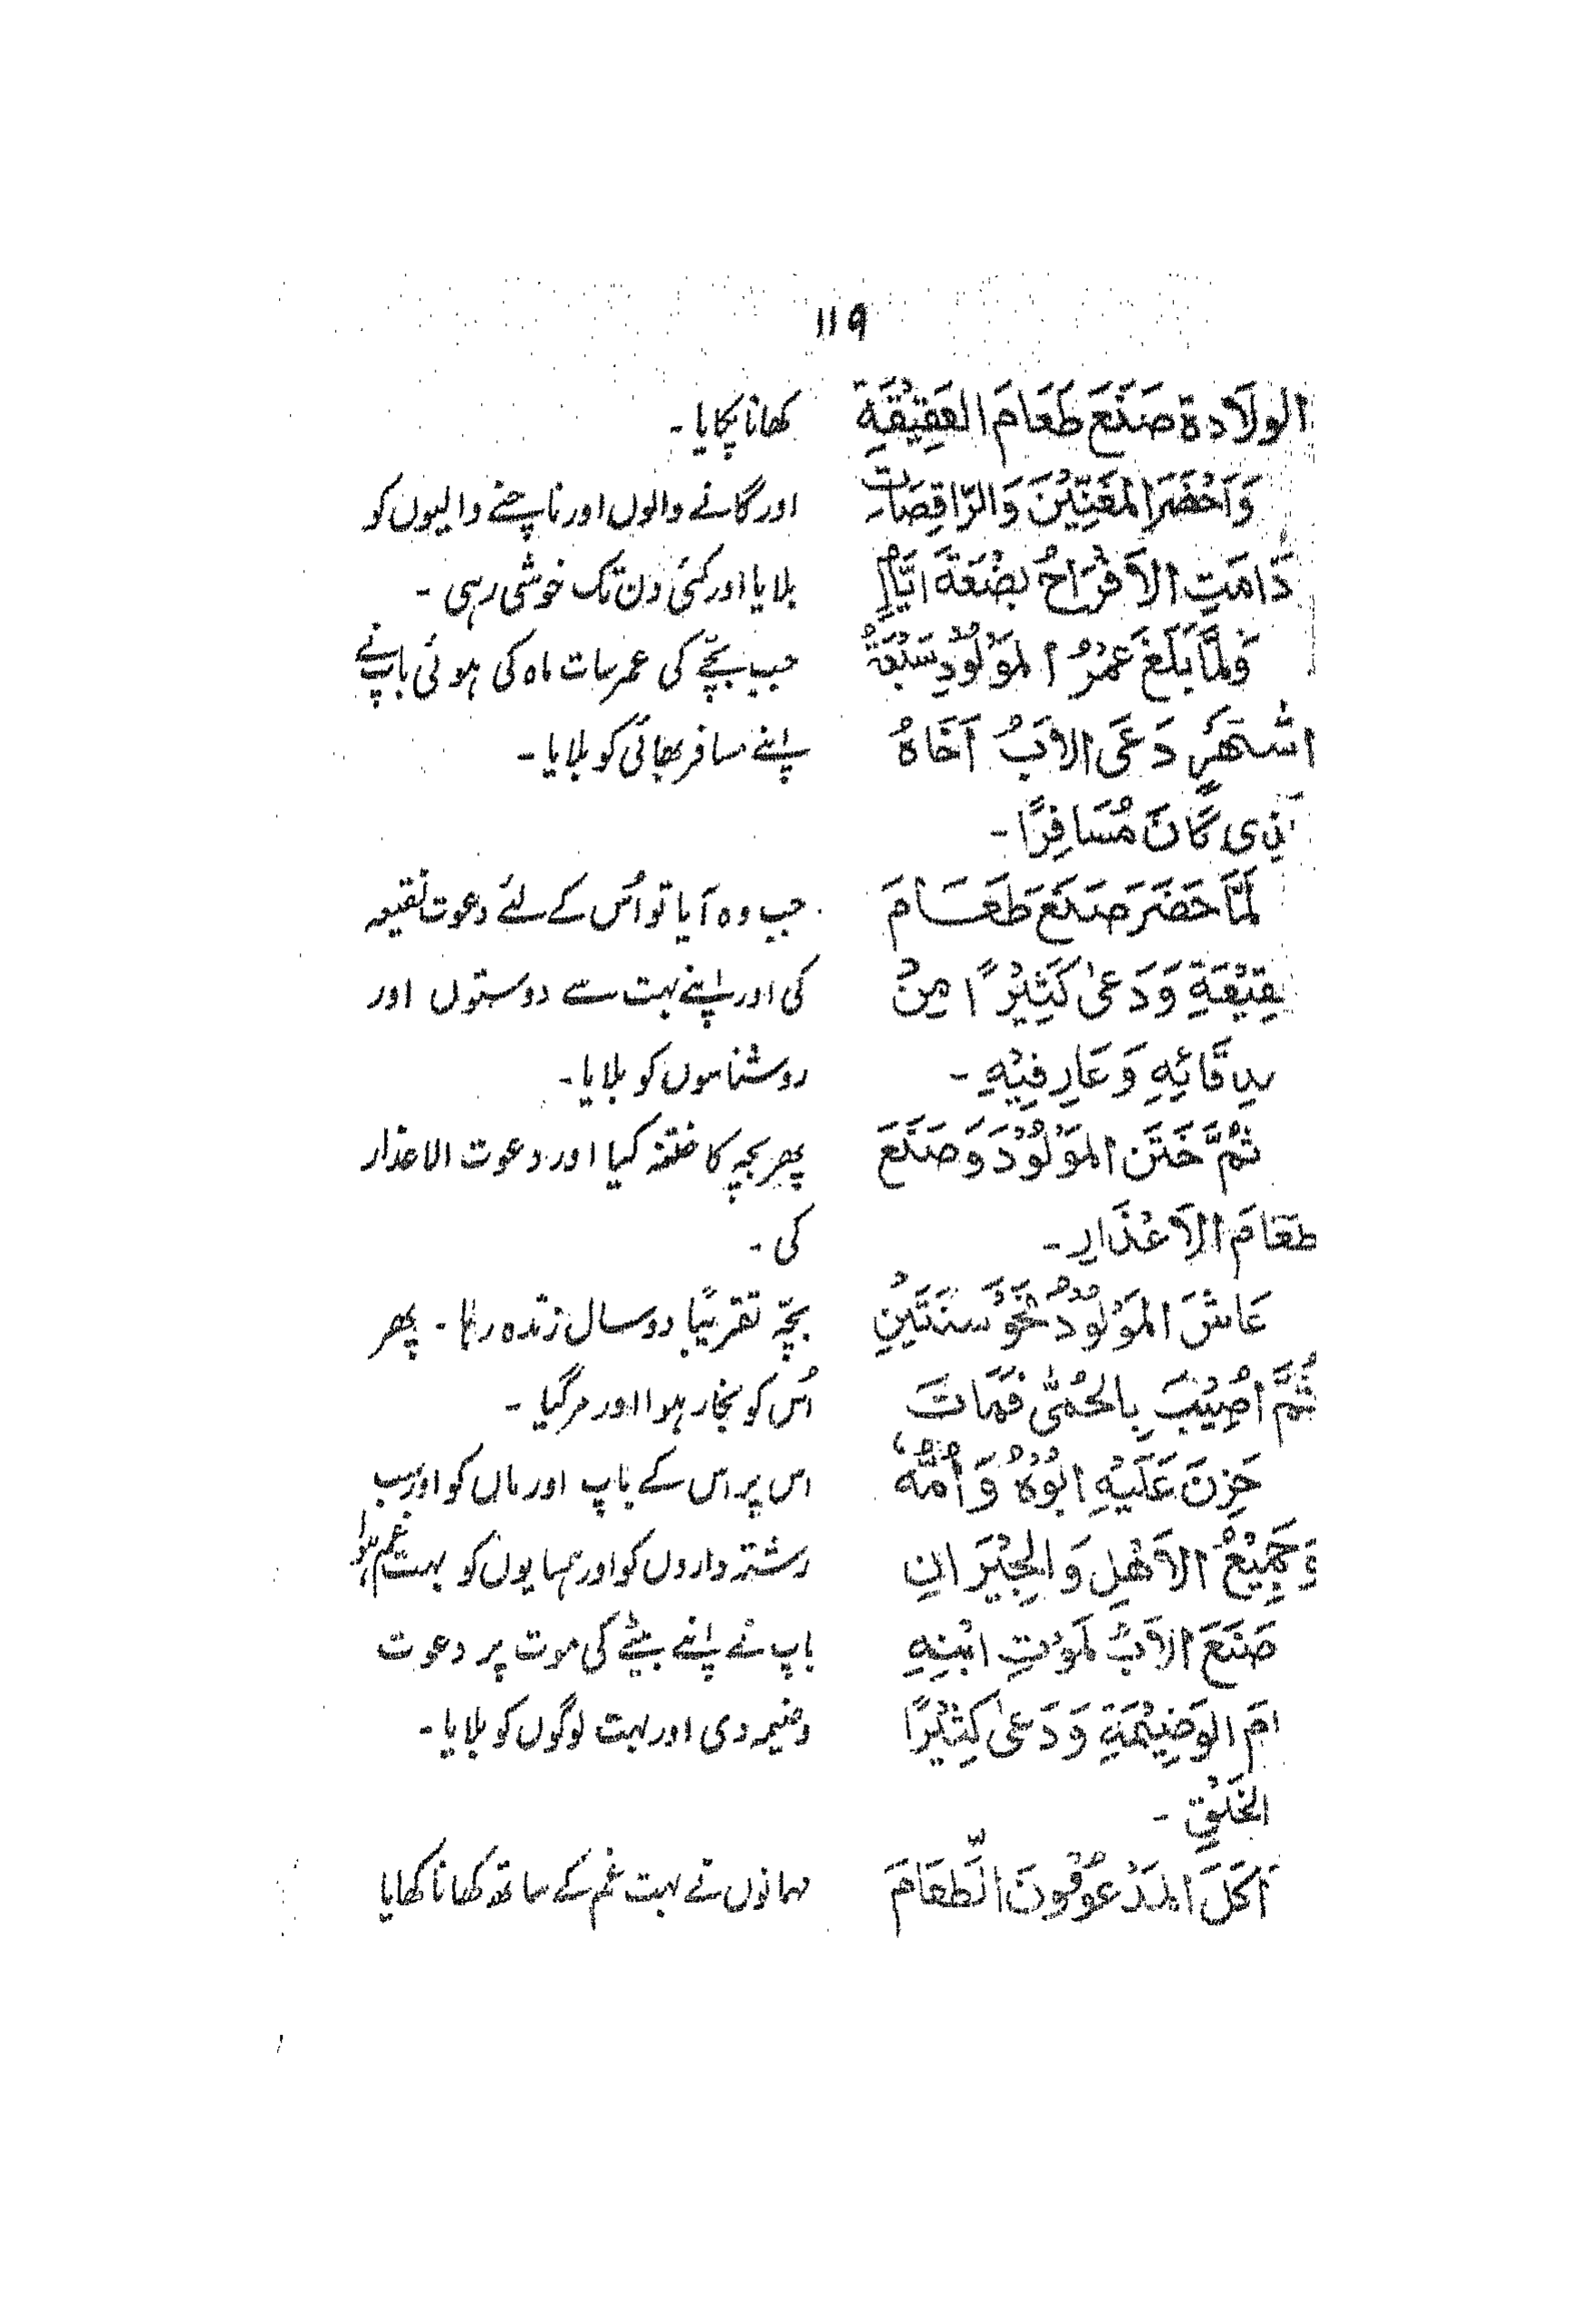 ۱۱۹
الولَادة صَنَعَ طَعَامَ العَقِيْقَةِ
وَاَحْضَرَ المُغَنِّيْنَ وَالرَّاقِصَاتِ
دَامَتِ الاَفْرَاحُ بِضْعَةَ اَيَّامٍ
وَلَمَّا بَلَغَ عُمْرُ المَوْلُوْدِ سَبْعَةَ
اَشْهُرٍ دَعَى الاَبُ اَخَاهُ
ذِى كَانَ مُسَافِرًا -
لَمَّا حَضَرَ صَنَعَ طَعَامَ
نقِيْعَةِ وَدَعىٰ كَثِيْرًا مِنْ
دِقَائِهِ وَعَارِفِيْهِ -
ثُمَّ خَتَنَ المَوْلُوْدَ وَصَنَعَ
طَعَامَ الاَعْذَارِ -
عَاشَ المَوْلُوْدُ نَحْوَ سَنَتَيْنِ
ثُمَّ اُصِيْبَ بِالحُمّٰى فَمَاتَ
حَزِنَ عَلَيْهِ اَبُوْهُ وَاُمُّهُ،
وَجَمِيْعُ الاَهْلِ وَالجِيْرَانِ
صَنَعَ الاَبُ لمَوْتِ ابْنِهِ
امَ الوَضِيْمَةِ وَدَعىٰ كَثِيْرًا
الخَلْقِ -
اَكَلَ المَدْعُوُّونَ الطَّعَامَ
کھانا پکایا -
اور گانے والوں اور ناچنے والیوں کو
بلایا اور کئی دن تک خوشی رہی -
جب بچّے کی عمر سات ماہ کی ہوئی باپ نے
اپنے مسافر بھائی کو بلایا -
جب وہ آیا تو اُس کے لئے دعوت نقیعہ
کی اور اپنے بہت سے دوستوں اور
روشناسوں کو بلایا -
پھر بچہ کا ختنہ کیا اور دعوت الاعذار
کی -
بچّہ تقریبًا دو سال زندہ رہا - پھر
اُس کو بخار ہوا اور مر گیا -
اس پر اس کے باپ اور ماں کو اور سب
رشتہ داروں کو اور ہمسایوں کو بہت غم ہوا
باپ نے اپنے بیٹے کی موت پر دعوت
وضیمہ دی اور بہت لوگوں کو بلایا -
مہمانوں نے بہت غم کے ساتھ کھانا کھایا